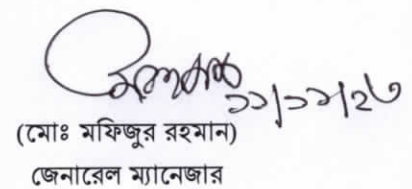 ১১/১১/২৩
(মোঃ মফিজুর রহমান)
জেনারেল ম্যানেজার